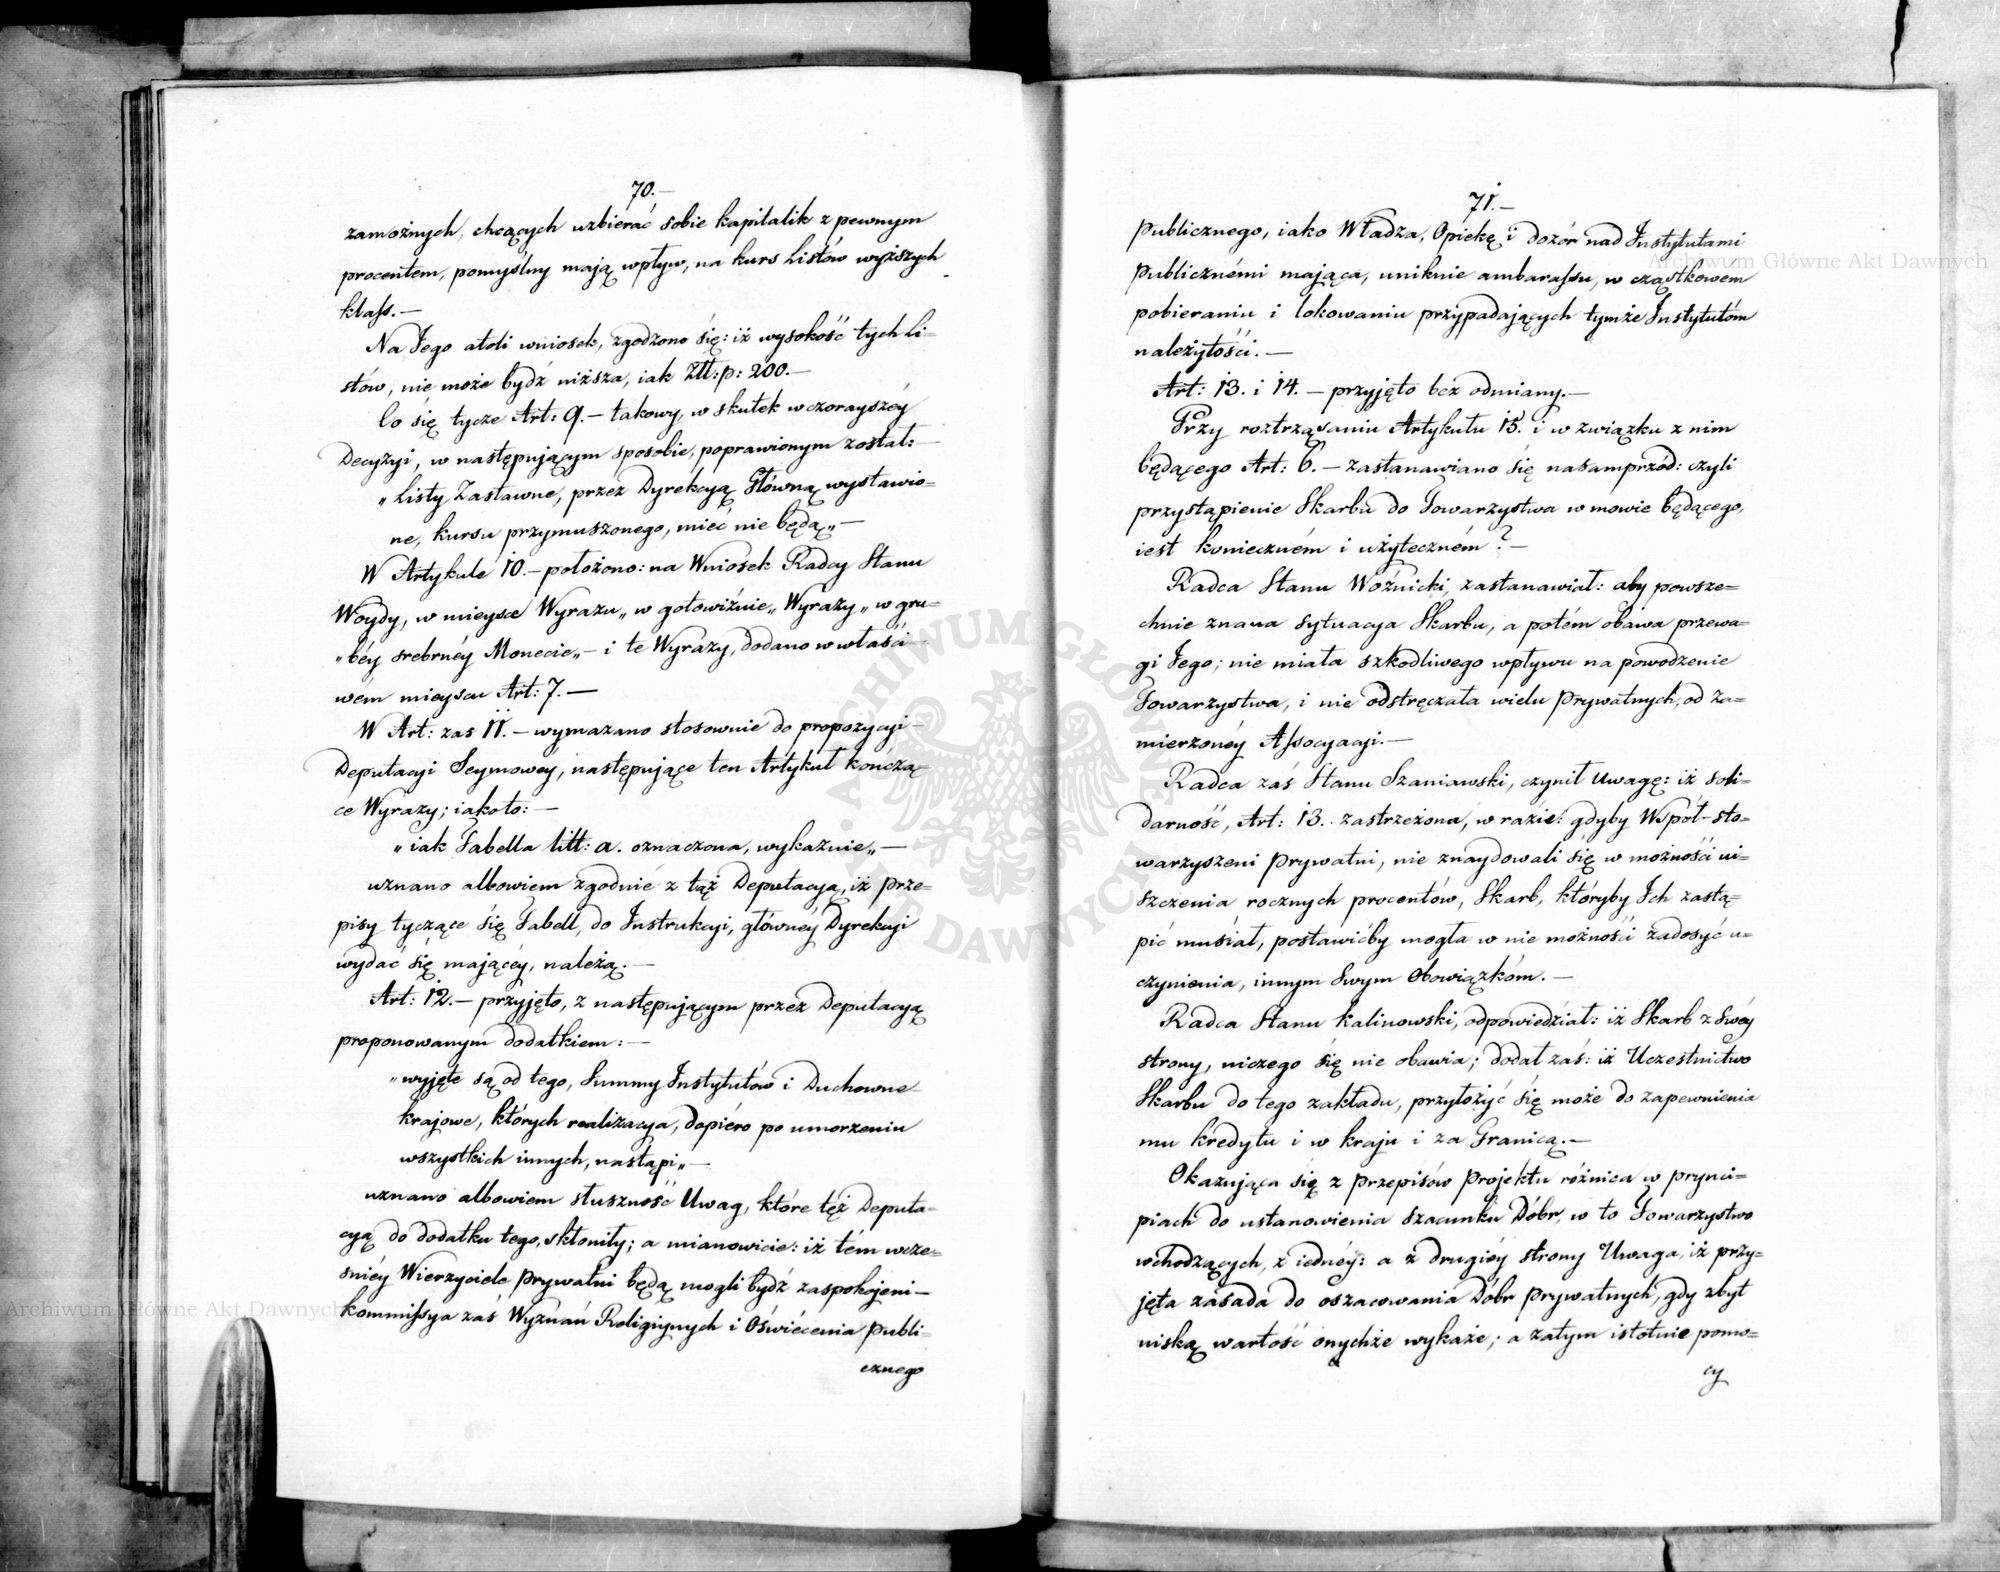 70.—
zamożnych, chcących uzbierać sobie kapitalik z pewnym
procentem, pomyślny mają wpływ, na kurs Listów wyższych
klass.—
Na Jego atoli wniosek, zgodzono się: iż wysokość tych Li-
stów, nie może bydź niższa, iak Złł: p: 200.—
Co się tycze Art: 9.— takowy, w skutek wczorayszéy
Decyzyi, w następującym sposobie, poprawionym został:—
„Listy Zastawne, przez Dyrekcyą Główną wystawio-
ne, kursu przymuszonego, mieć nie będą„—
W Artykule 10.— położono: na Wniosek Radcy Stanu
Woydy, w mieysce Wyrazu „w gotowiźnie„ Wyrazy „w gru-
„béy srebrnéy Monecie„— i te Wyrazy, dodano w właści-
wém mieyscu Art: 7.—
W Art: zaś 11.— wymazano stosownie do propozycyi—
Deputacyi Seymowéy, następujące ten Artykuł kończą-
ce Wyrazy; iako to:—
„iak Tabella litt: a. oznaczona, wykazuie„—
uznano albowiem zgodnie z tąż Deputacyą, iż prze-
pisy tyczące się Tabell, do Instrukcyi, głównéy Dyrekcyi
wydać się maiącéy, należą.—
Art: 12.— przyjęto, z następującym przez Deputacyą
proponowanym dodatkiem:—
„wyjęte są od tego, Summy Instytutów i Duchowne
krajowe, których realizacya, dopiéro po umorzeniu
wszystkich innych, nastąpi„—
uznano albowiem słuszność Uwag, które téż Deputa-
cyą do dodatku tego, skłoniły; a mianowicie: iż tém wcze-
śniéy Wierzyciele prywatni będą mogli bydź zaspokojeni—
Kommissya zaś Wyznań Religiynych i Oświécenia Publi-
cznego
71.—
Publicznego, iako Władza, Opiekę i dozór nad Instytutami
Publicznémi mająca, uniknie ambarassu, w cząstkowem
pobieraniu i lokowaniu przypadających tymże Instytutóm
należytości.—
Art: 13. i 14.— przyjęto bez odmiany.—
Przy roztrząsaniu Artykułu 15. i w związku z nim
będącego Art: 6.— zastanawiano się nasamprzód: czyli
przystąpienie Skarbu do Towarzystwa w mowie będącego,
iest konieczném i użyteczném?—
Radca Stanu Woźnicki, zastanawiał: aby powsze-
chnie znana sytuacya Skarbu, a potém obawa przewa-
gi Jego; nie miała szkodliwego wpływu na powodzenie
Towarzystwa, i nie odstręczała wielu Prywatnych, od za-
mierzonéy Assocyacyi.—
Radca zaś Stanu Szaniawski, czynił Uwagę: iż soli-
darność, Art: 13. zastrzeżona, w razie: gdyby Wspól-sto-
warzyszeni Prywatni, nie znaydowali się w możności ui-
szczenia rocznych procentów, Skarb, któryby Ich zastą-
pić musiał, postawićby mogła w nie możności zadosyć u-
czynienia, innym Swym Obowiązkóm.—
Radca Stanu Kalinowski, odpowiedział: iż Skarb z Swéy
strony, niczego się nie obawia; dodał zaś: iż Uczestnictwo
Skarbu do tego zakładu, przyłożyć się może do zapewnienia
mu kredytu i w kraju i za Granicą.—
Okazująca się z przepisów Projektu różnica w prynci-
piach do ustanowienia szacunku Dóbr, w to Towarzystwo
wchodzących, z iednéy: a z drugiéy strony Uwaga, iż przy-
jęta zasada do oszacowania Dóbr Prywatnych, gdy zbyt
niską wartość onychże wykaże; a zatym istotnie pomo-
cy
Archiwum Główne Akt Dawnych
Archiwum Główne Akt Dawnych
ARCHIWUM GŁÓWNE AKT DAWNYCH